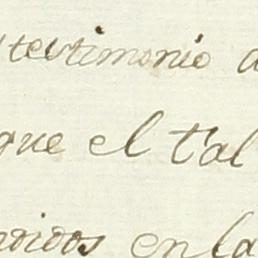 testimonio
que el tal
en la